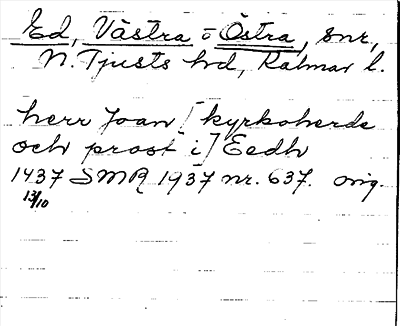 Ed, Västra o Östra, snr,
N. Tjusts hd, Kalmar l.
herr Joan [kyrkoherde
och prost i] Eedh
1437 SMR 1937 nr. 637. orig.
13/10